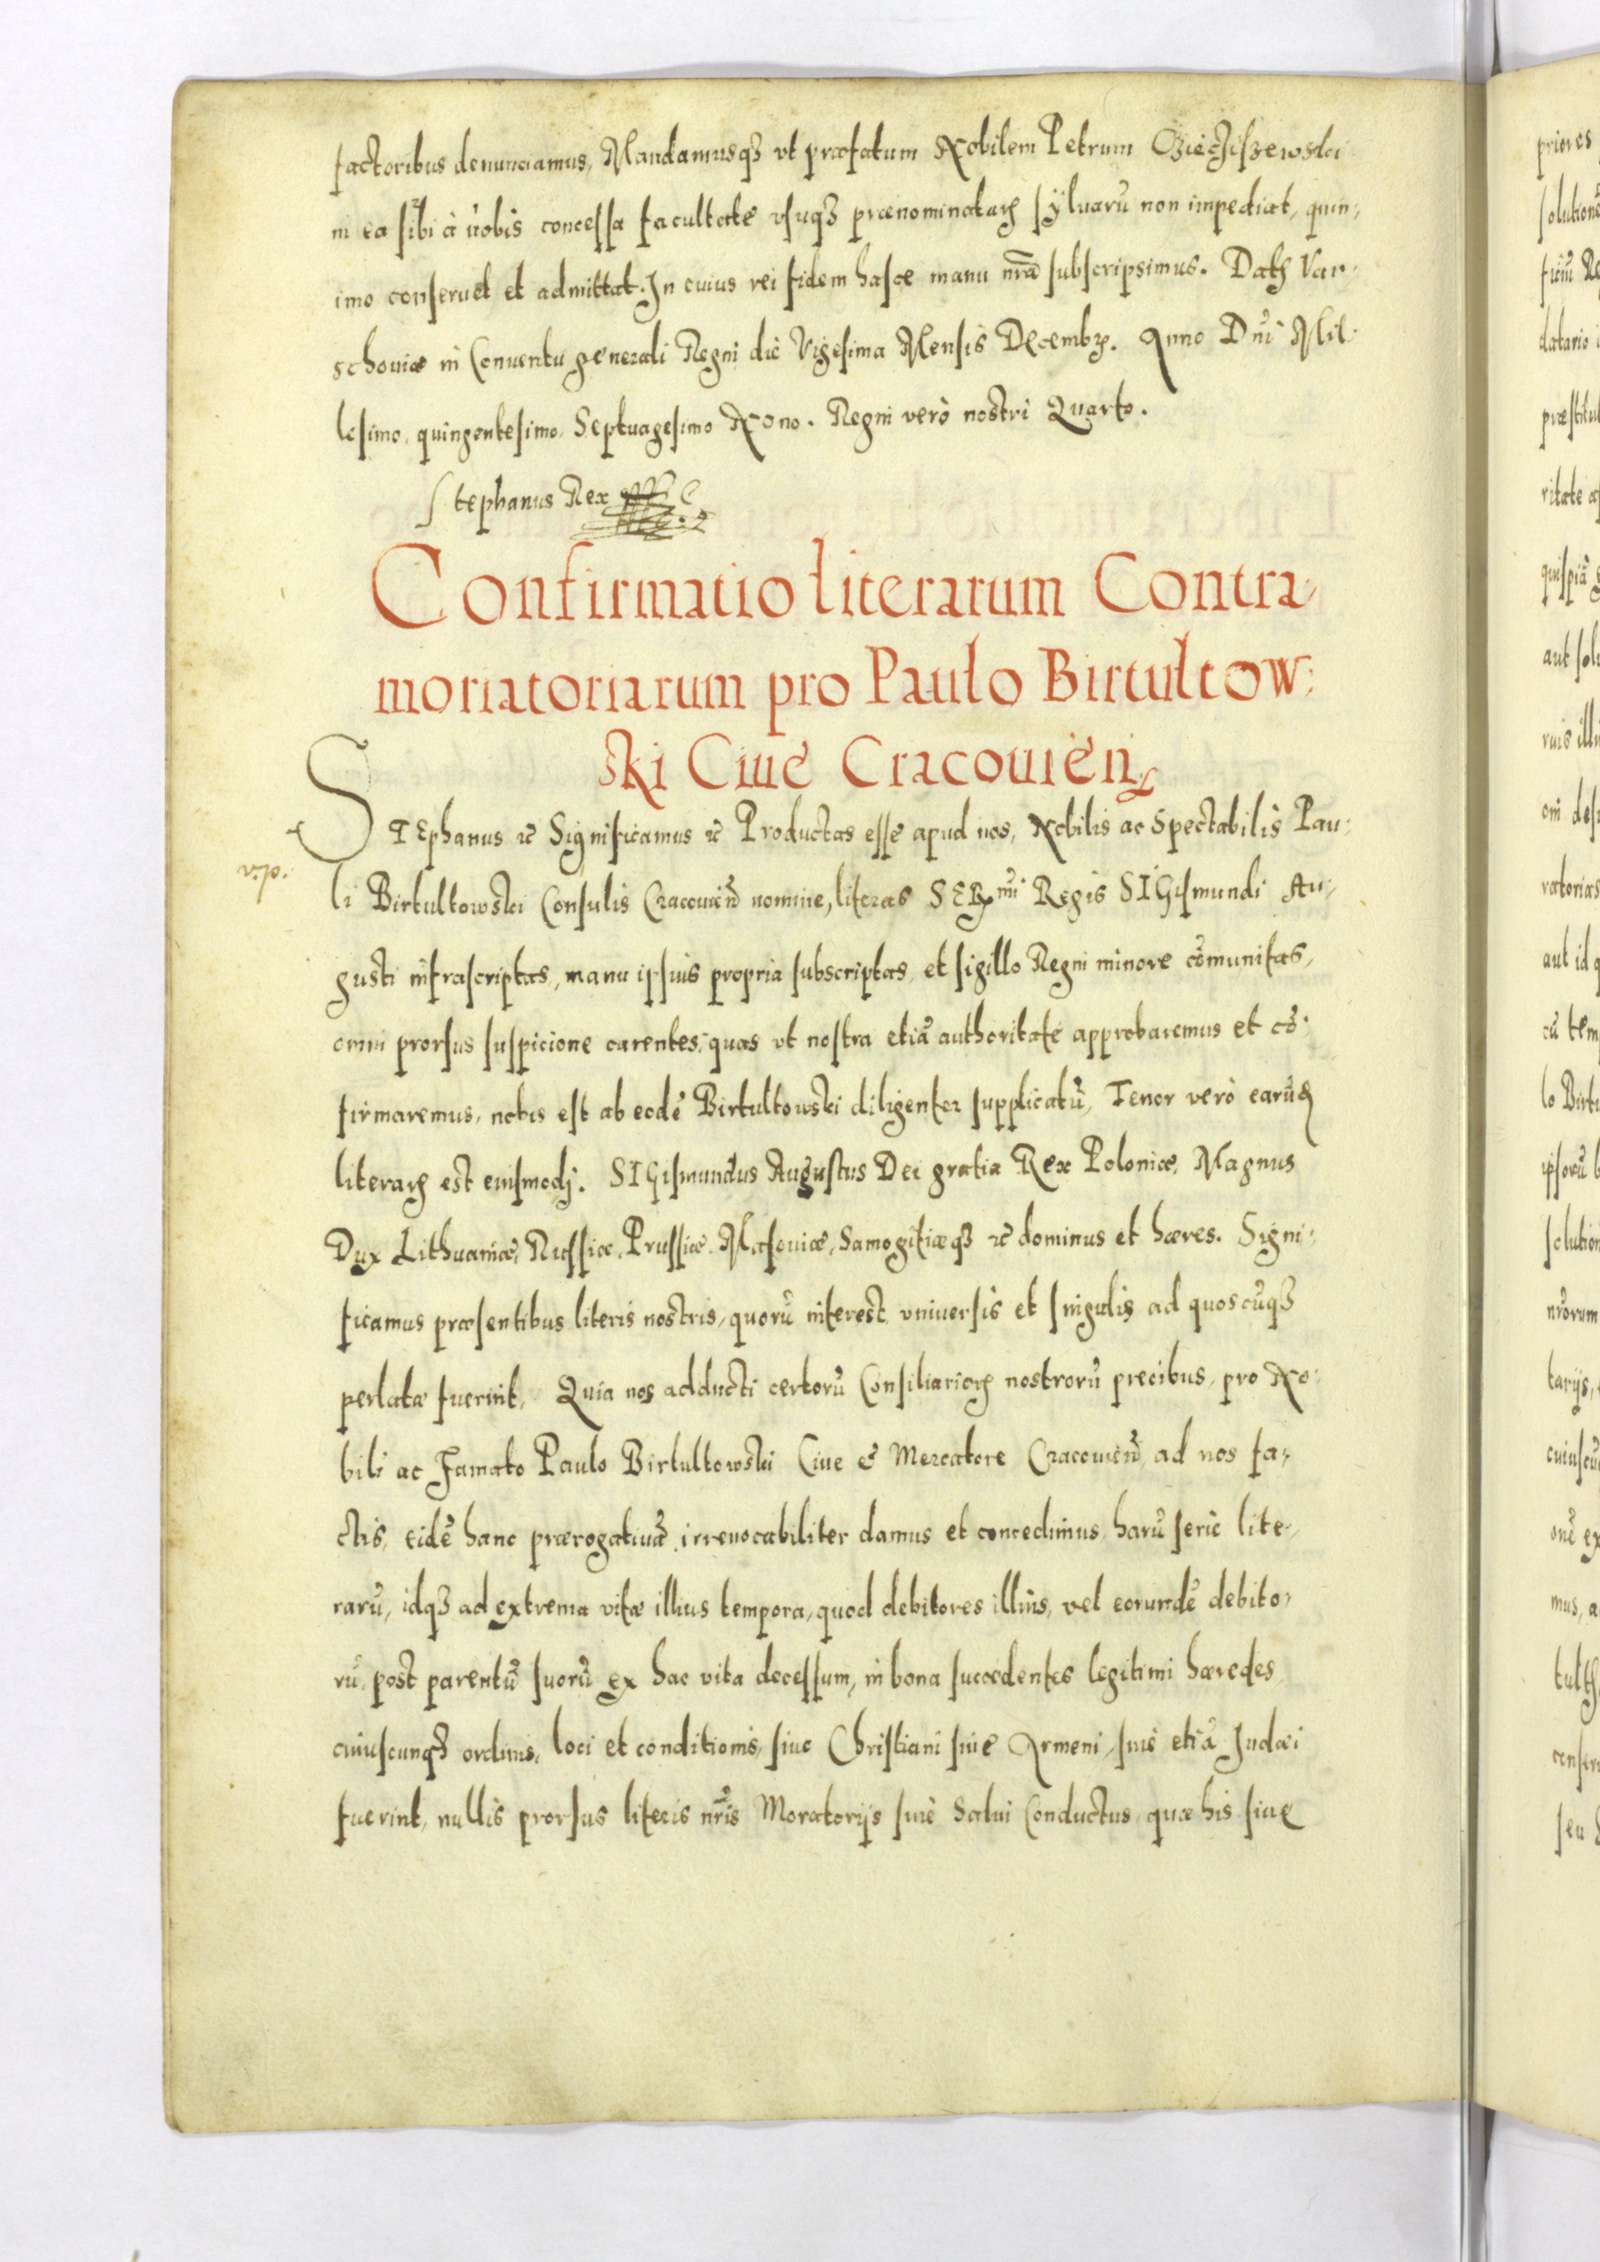 factoribus denunciamus, Mandamusq3 vt præfatum Nobilem Petrum
in ea sibi à nobis concessa facultate vsuq3 prænominataꝝ syluarũ non impediat, quin,
imo conseruet et admittat. In cuius rei fidem hasce manu nr̃a subscripsimus. Datꝝ Var-
schouiæ in Conuentu generali Regni die Vigesima Mensis Decembꝝ. Anno Dnĩ Mil-
lesimo, quingentesimo, Septuagesimo Nono. Regni verò nostri Quarto.
Stephanus Rex
Confirmatio literarum Contra,
moriatoriarum pro Paulo Birtultow:
ski Ciue Cracouien̄
STEphanus ꝛc Significamus ꝛc Productas esse apud nos, Nobilis ac Spectabilis Pau-
li Birtultowski Consulis Cracouien̄ nomine, literas SERmi Regis SIGismundi Au-
gusti infrascriptas, manu ipsius propria subscriptas, et sigillo Regni minore cõmunitas,
omni prorsus suspicione carentes, quas vt nostra etiã authoritate approbaremus et cõ-
firmaremus, nobis est ab eodẽ Birtultowski diligenter supplicatũ, Tenor verò earũd
literaꝝ est eiusmodj. SIGismundus Augustus Dei gratia Rex Poloniæ, Magnus
Dux Lithuaniæ, Russiæ, Prussiæ, Masouiæ, Samogitiæq3 ꝛc dominus et hæres. Signi-
ficamus præsentibus literis nostris, quorũ interest vniuersis et singulis ad quoscũq3
perlatæ fuerint, Quia nos adducti certorũ Consiliarioꝝ nostrorũ precibus, pro No-
bili ac Famato Paulo Birtultowski Ciue & Mercatore Cracouien̄ ad nos fa-
ctis, eidẽ hanc prærogatiuã irreuocabiliter damus et concedimus, harũ serie lite-
rarũ, idq3 ad extrema vitæ illius tempora, quod debitores illius, vel eorundẽ debito-
rũ, post parentũ suorũ ex hac vita decessum, in bona succedentes legitimi hæredes,
cuiuscunq3 ordinis, loci et conditionis, siue Christiani siue Armeni, siue etiã Judæi
fuerint, nullis prorsus literis nr̃is Moratorijs siue Salui Conductus, quæ his siue